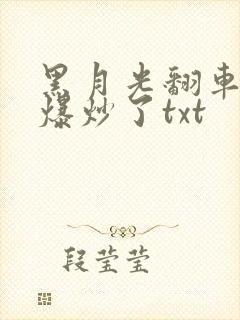 黑月光翻車
爆炒了txt
段莹莹